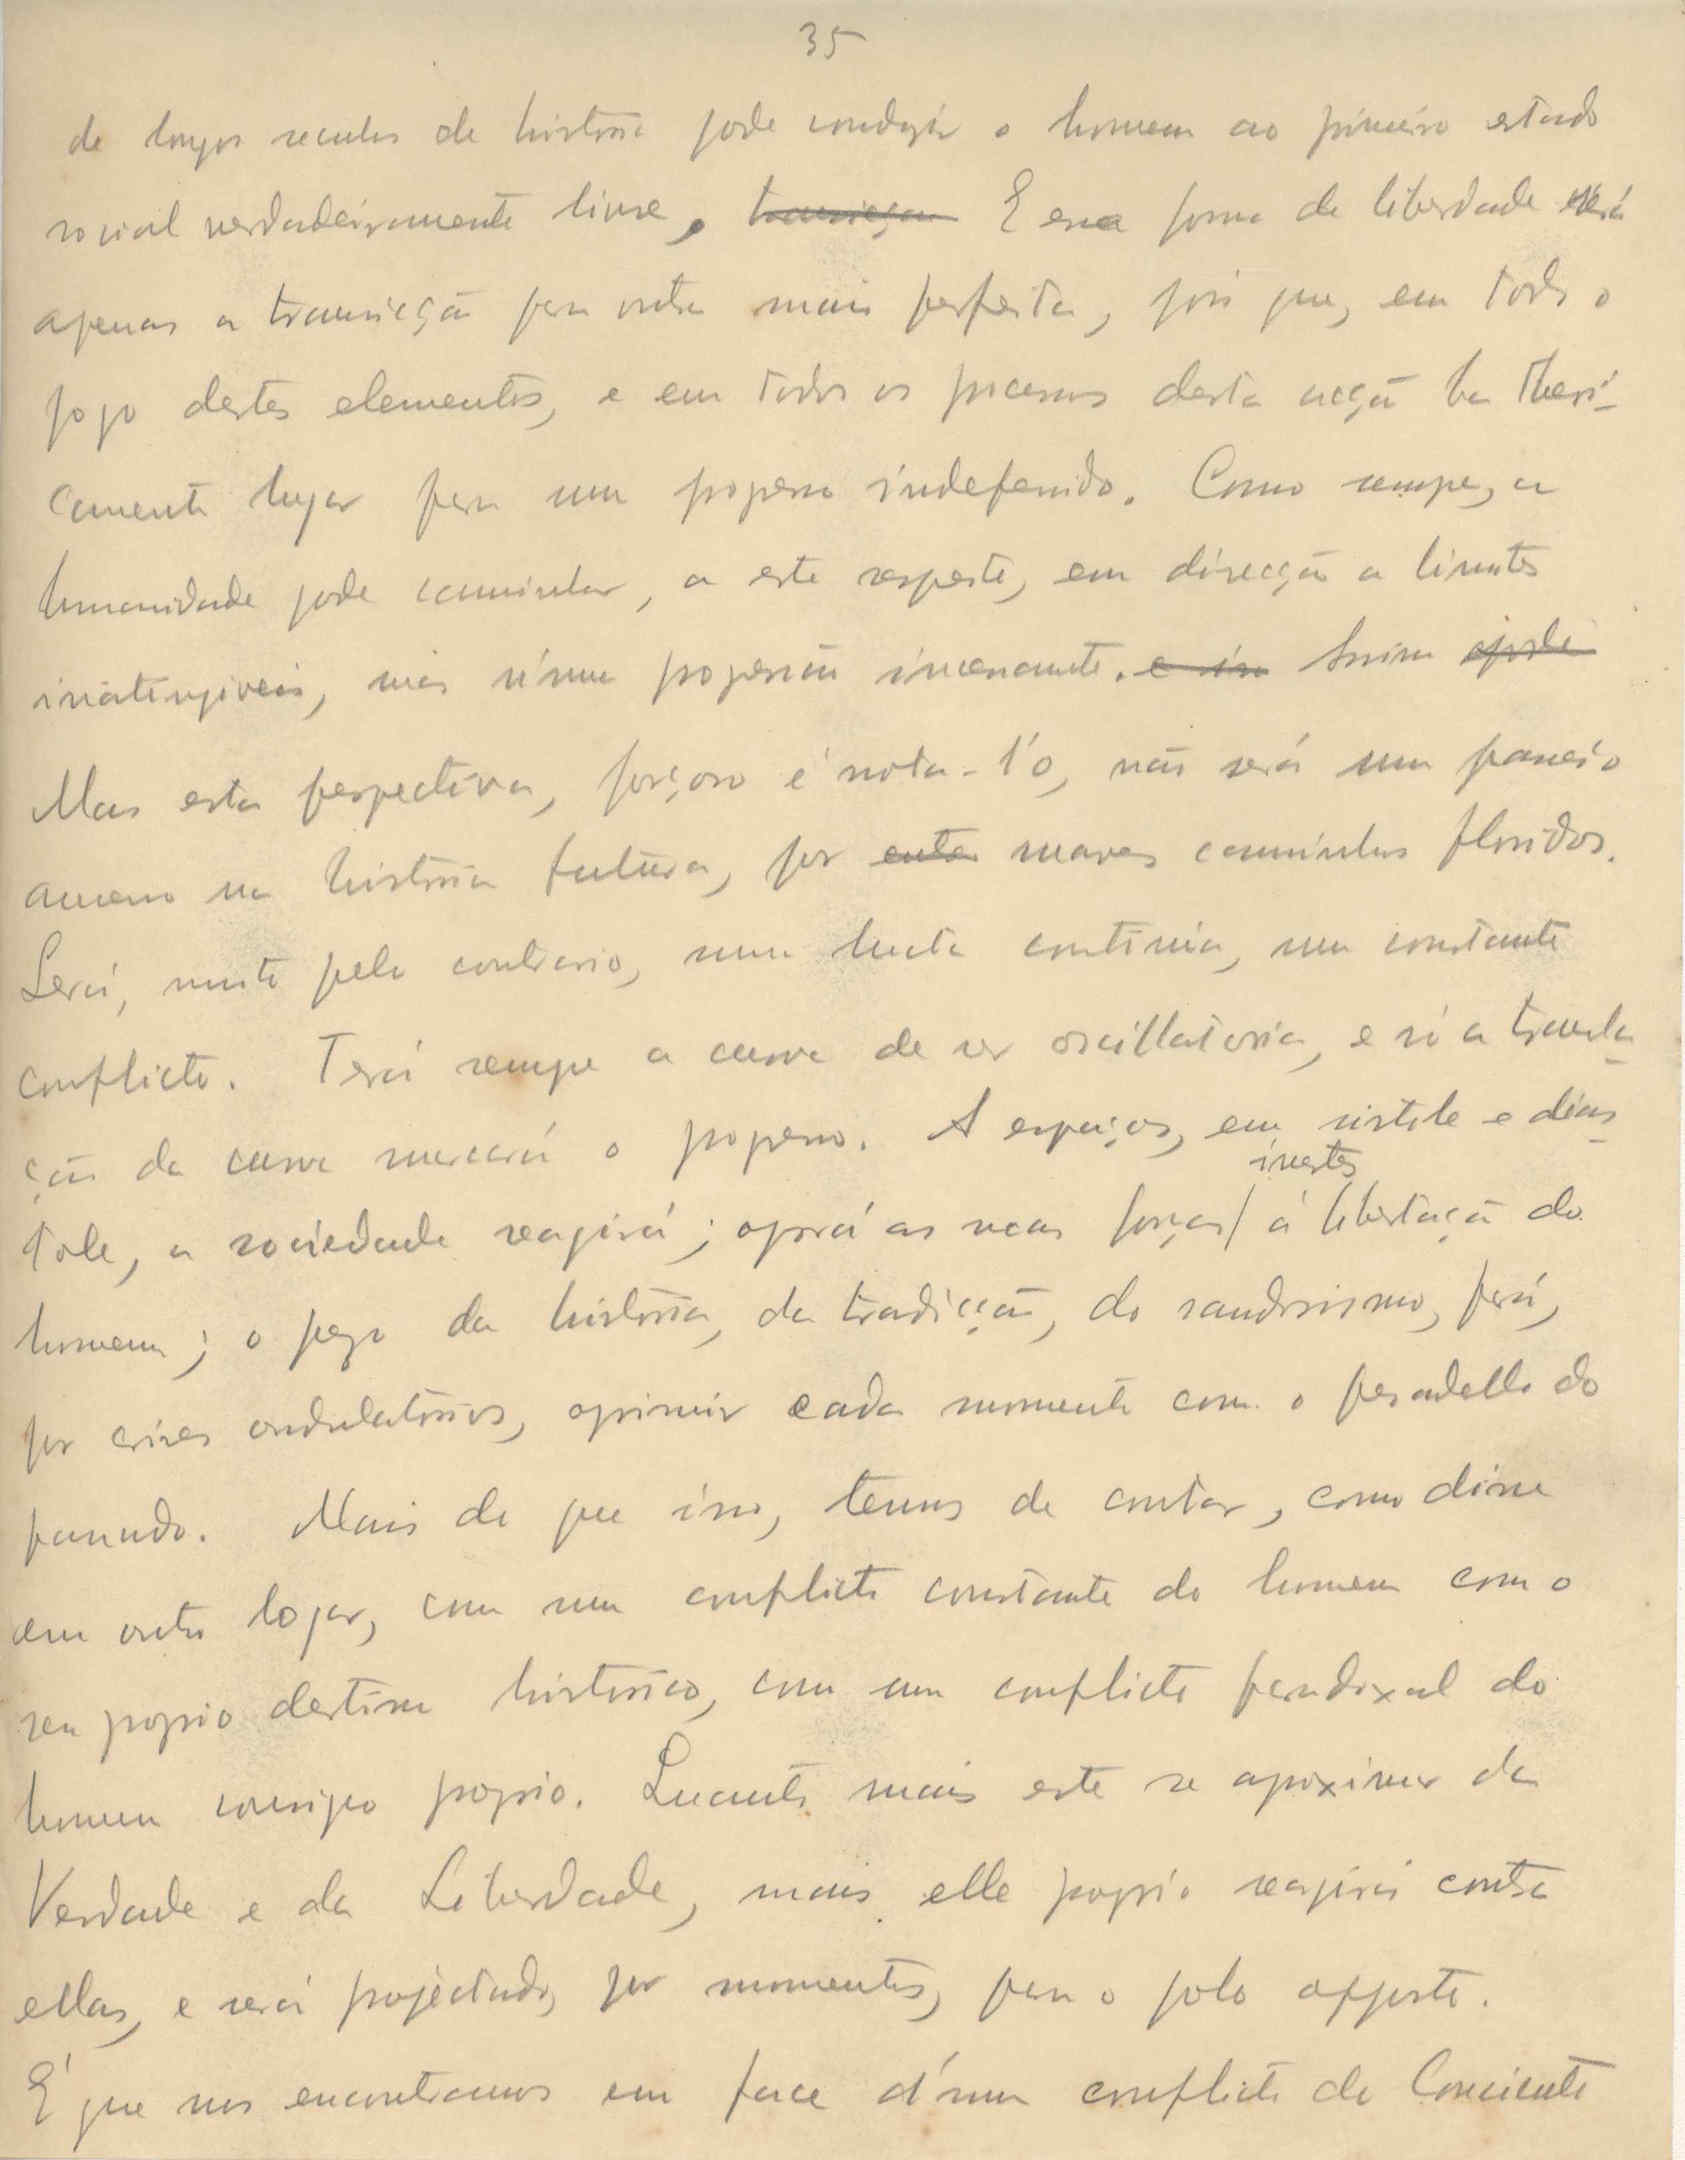 35
de longos seculos de historia pode conduzir o homem ao primeiro estado
social verdadeiramente livre, transicção E essa forma de liberdade será
apenas a transicção para outra mais perfeita, pois que, em todo o
jogo destes elementos, e em todos os processos desta acção ha theori-
camente lugar para um progresso indefenido. Como sempre, a
humanidade pode caminhar, a este respeito, em direcção a limites
inatingiveis, mas n'uma progressão incessante. e isso Assim
Mas esta perspectiva, forçoso é nota-l'o, não será um passeio
ameno na historia futura, por entre suaves caminhos floridos.
Será, muito pelo contrario, uma lucta continua, um constante
conflicto. Terá sempre a curva de ser oscillatoria, e só a transla-
ção da curva marcará o progresso. A espaços, em sistole e dias-
tole, a sociedade reagirá; oporá as suas forças inertes á libertação do
homem; o pezo da historia, da tradicção, do saudosismo, fará,
por crises ondulatorias, oprimir cada momento com o pesadello do
passado. Mais do que isso, temos de contar, como disse
em outro logar, com um conflicto constante do homem com o
seu proprio destino historico, com um conflicto paradoxal do
homem comsigo proprio. Quanto mais este se aproximar da
Verdade e da Liberdade, mais elle proprio reagirá contra
ellas, e será projectado, por momentos, para o polo opposto.
É que nos encontramos em face d'um conflicto do Consciente